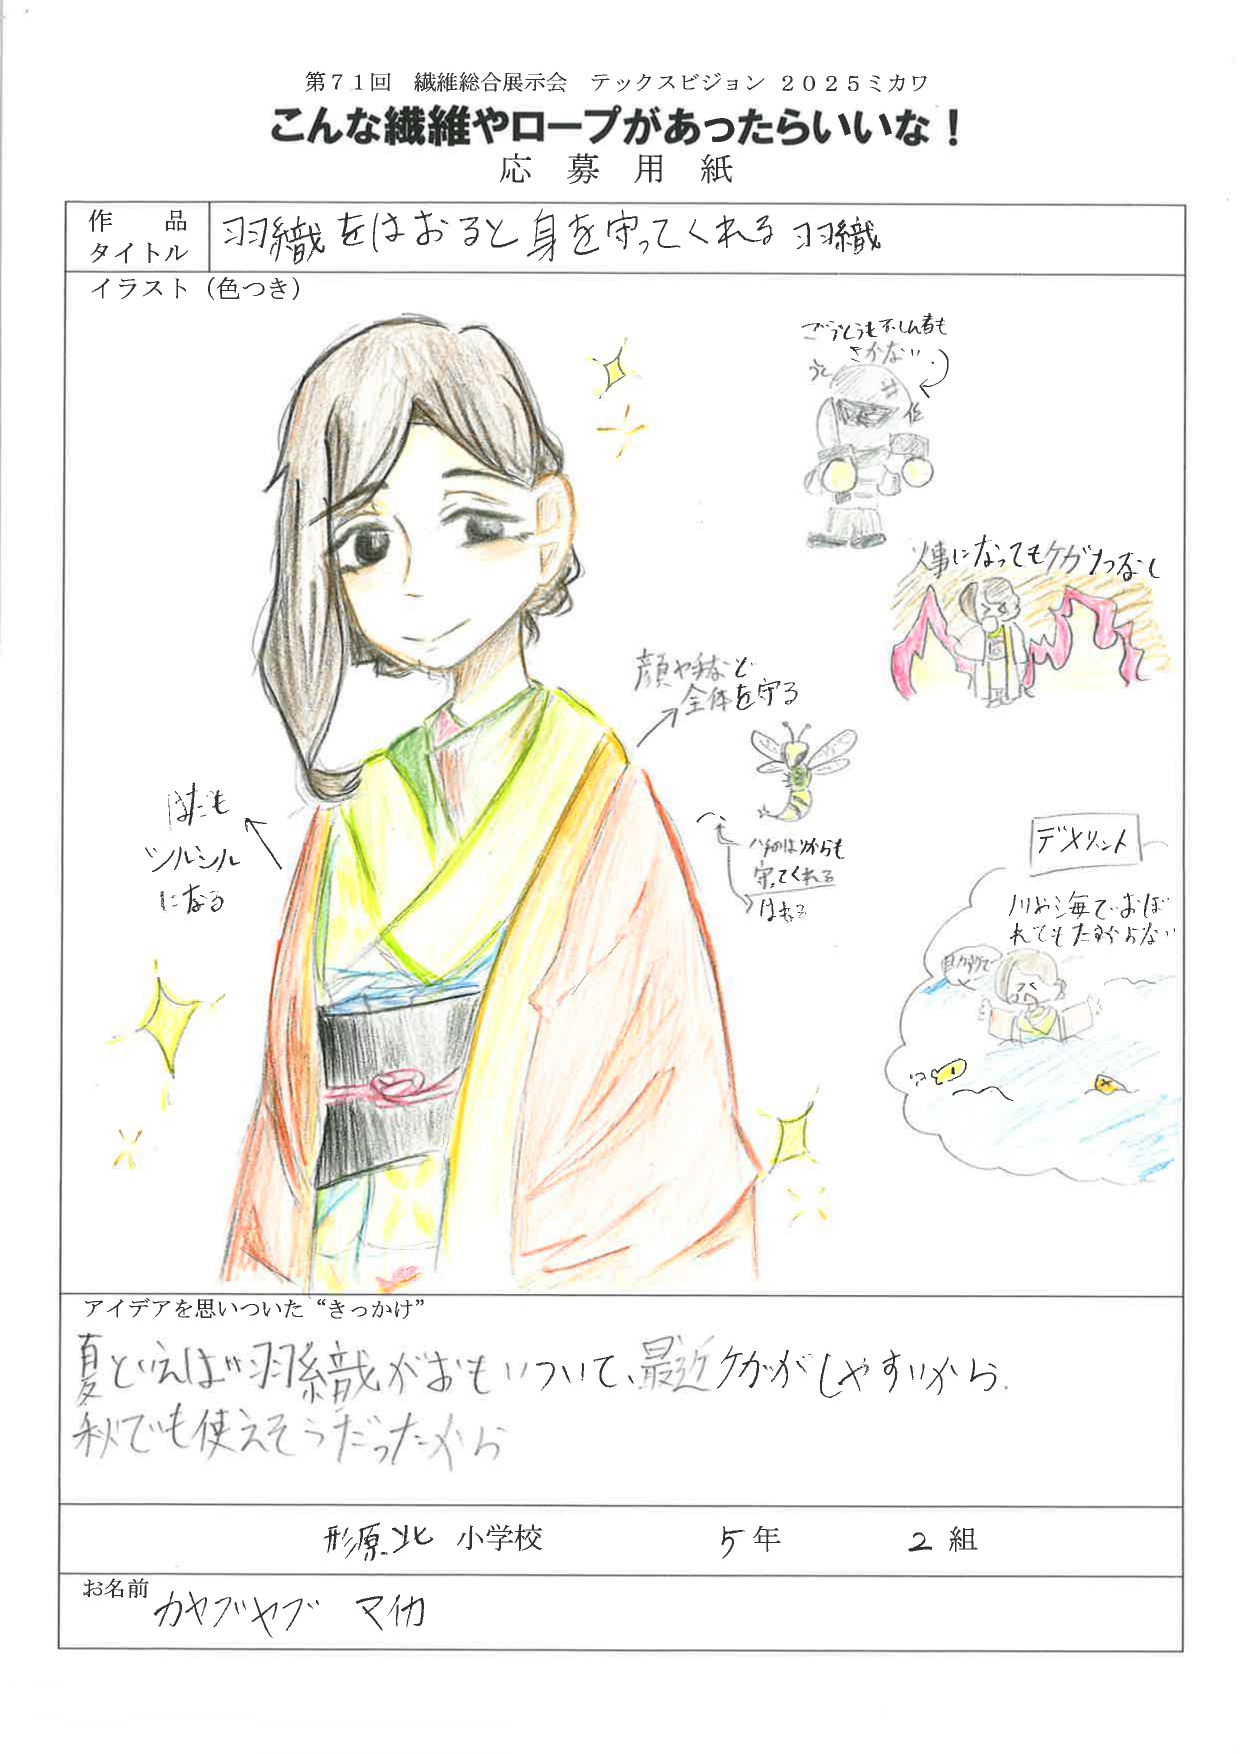 第71回 繊維総合展示会 テックスビジョン 2025ミカワ
こんな繊維やロープがあったらいいな！
応募用紙
作品タイトル
羽織をはおると身を守ってくれる羽織
イラスト（色つき）
ごうとうも不しん者も
きかない
火事になってもケガ1つなし
顔や手など
全体を守る
はだも
ツルツル
になる
ハチのはりからも
守ってくれる
デメリット
川や海でおぼ
れてもたすからない
アイデアを思いついた“きっかけ”
夏といえば羽織がおもいついて、最近ケガがしやすいから
秋でも使えそうだったから
形原北 小学校 5年 2組
お名前 カヤブヤブ マイカ